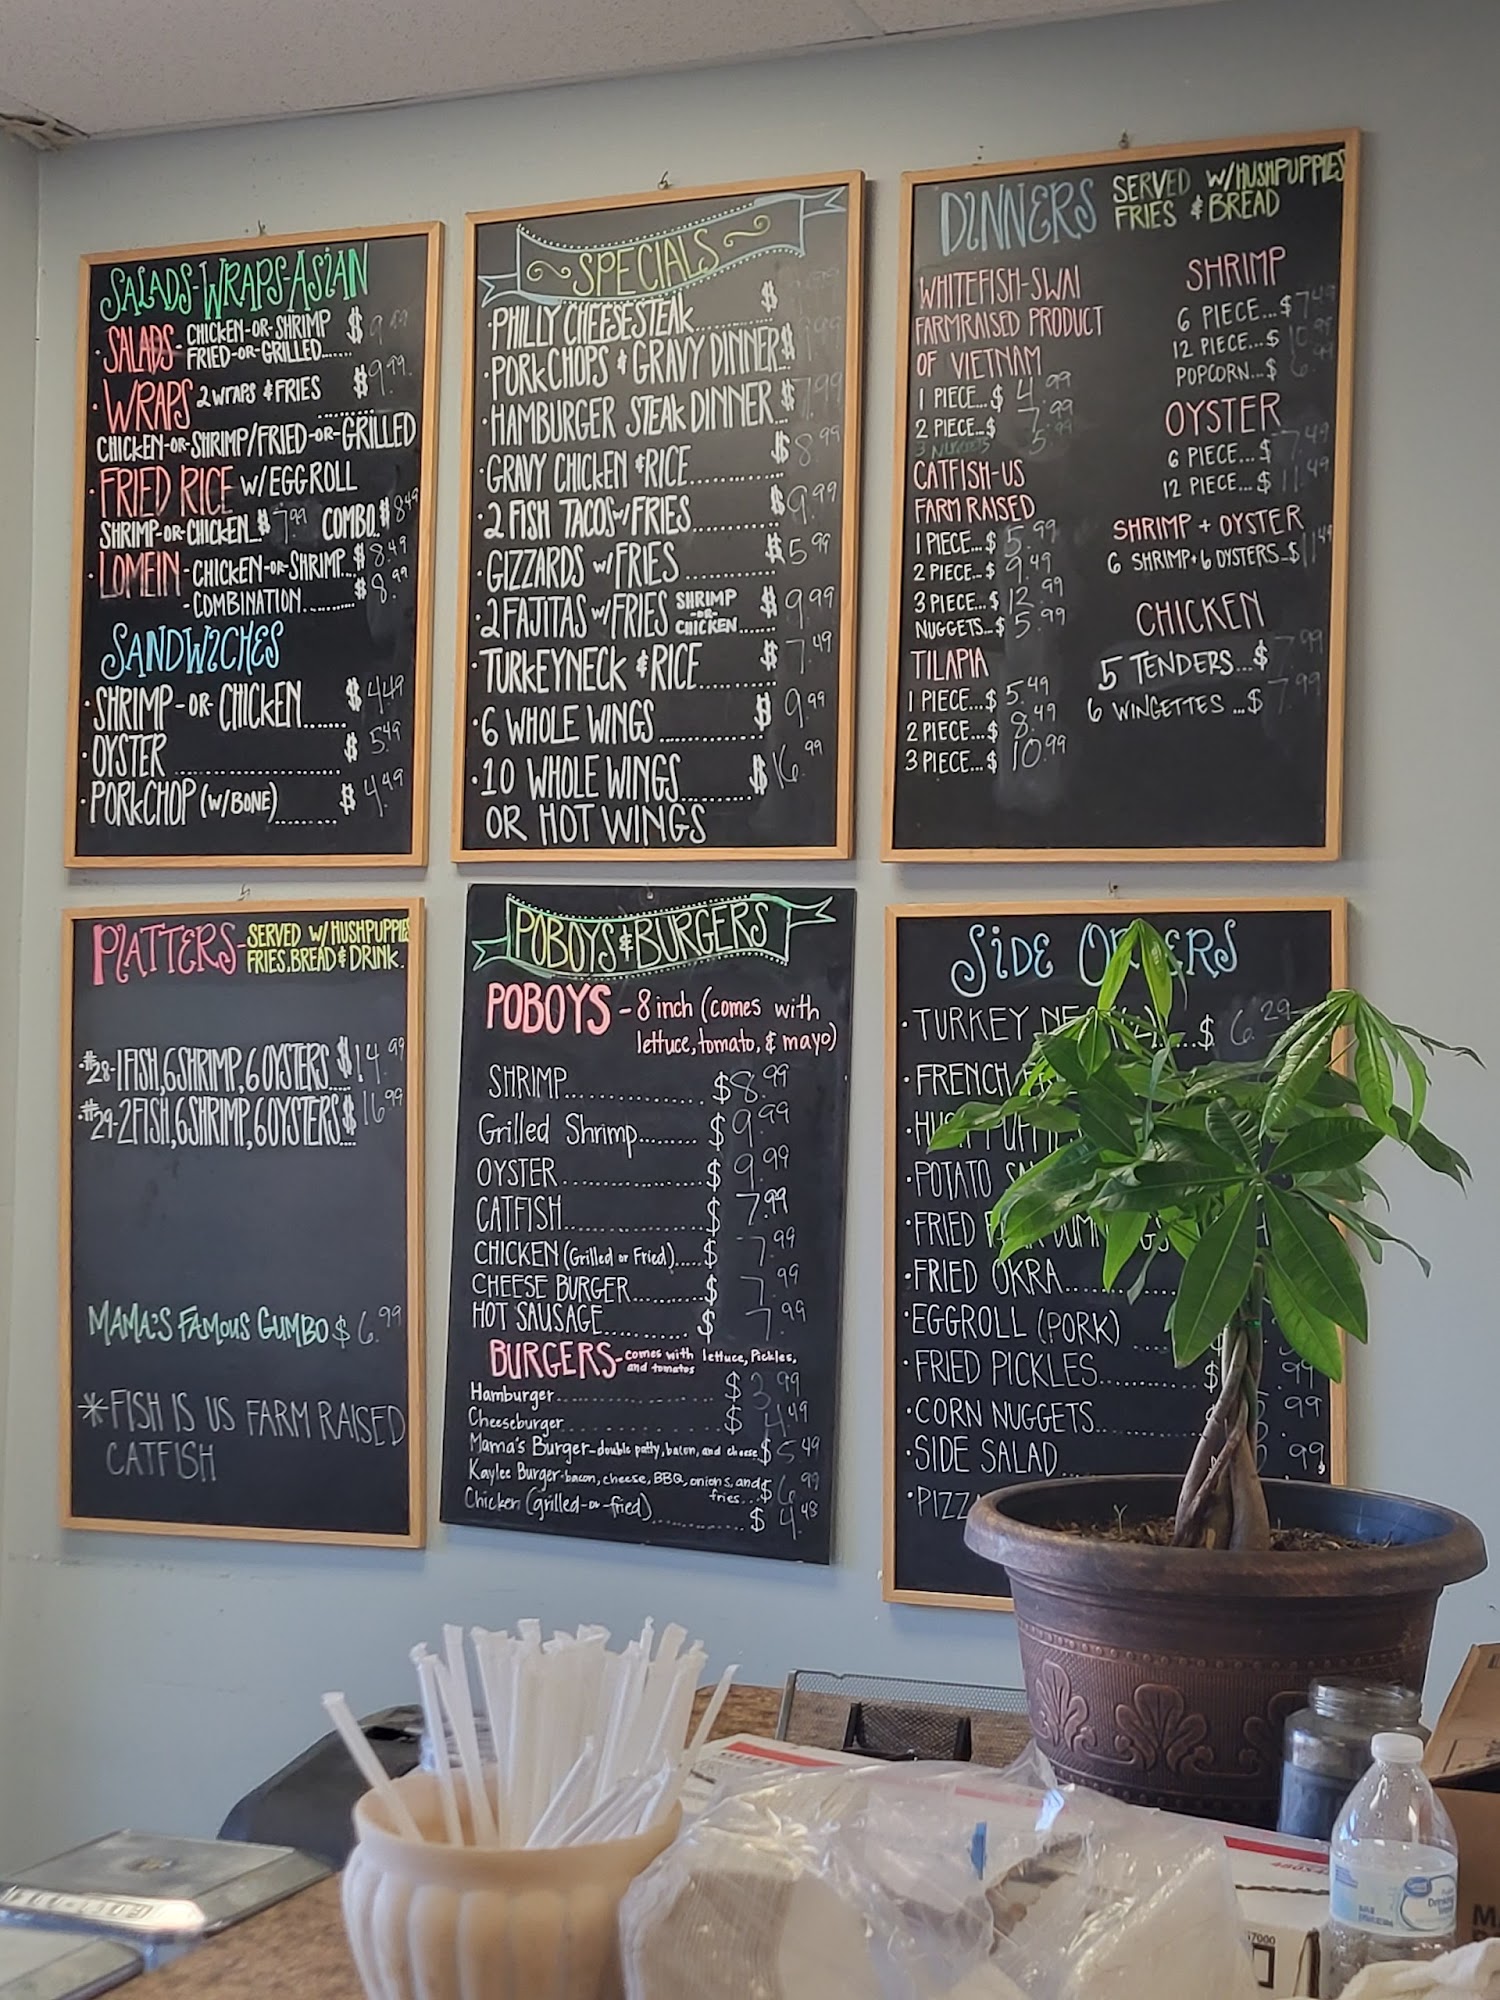 SALADS-WRAPS-ASIAN
·SALADS- CHICKEN-OR-SHRIMP $
FRIED-OR-GRILLED.......
·WRAPS 2 WRAPS & FRIES $9.99
CHICKEN-OR-SHRIMP/FRIED-OR-GRILLED
·FRIED RICE W/EGGROLL
SHRIMP-OR-CHICKEN..$7.99 COMBO.$8.49
·LOMEIN-CHICKEN-OR-SHRIMP...$8.49
-COMBINATION..........$8.99
SANDWICHES
·SHRIMP-OR-CHICKEN.......$4.49
·OYSTER......................$5.49
·PORKCHOP (W/BONE).........$4.49
SPECIALS
·PHILLY CHEESESTEAK..........$
·PORKCHOPS & GRAVY DINNER$
·HAMBURGER STEAK DINNER...$7.99
·GRAVY CHICKEN & RICE.............$8.99
·2 FISH TACOS W/FRIES............$9.99
·GIZZARDS W/FRIES............$5.99
·2 FAJITAS W/FRIES SHRIMP -OR- CHICKEN......$9.99
·TURKEYNECK & RICE...........$7.49
·6 WHOLE WINGS...............$9.99
·10 WHOLE WINGS..........$16.99
OR HOT WINGS
DINNERS SERVED W/HUSHPUPPIES
FRIES & BREAD
WHITEFISH-SWAI
FARMRAISED PRODUCT
OF VIETNAM
1 PIECE...$4.99
2 PIECE..$7.99
3 NUGGETS 5.99
CATFISH-US
FARM RAISED
1 PIECE...$5.99
2 PIECE..$9.49
3 PIECE...$12.99
NUGGETS...$5.99
TILAPIA
1 PIECE...$5.49
2 PIECE...$8.49
3 PIECE...$10.99
SHRIMP
6 PIECE...$7.49
12 PIECE...$10.99
POPCORN...$6.99
OYSTER
6 PIECE...$7.49
12 PIECE...$11.49
SHRIMP + OYSTER
6 SHRIMP+6 OYSTERS..$11.49
CHICKEN
5 TENDERS...$7.99
6 WINGETTES...$7.99
PLATTERS- SERVED W/HUSHPUPPIES
FRIES, BREAD & DRINK.
·#28-1FISH,6SHRIMP,6OYSTERS $14.99
·#29-2FISH,6SHRIMP,6OYSTERS $16.99
MAMA'S FAMOUS GUMBO $6.99
*FISH IS US FARM RAISED
CATFISH
POBOYS & BURGERS
POBOYS - 8 inch (comes with
lettuce, tomato, & mayo)
SHRIMP...............$8.99
Grilled Shrimp........$9.99
OYSTER...............$9.99
CATFISH...............$7.99
CHICKEN (Grilled or Fried).....$7.99
CHEESE BURGER..........$7.99
HOT SAUSAGE............$7.99
BURGERS-comes with lettuce, Pickles,
and tomatos
Hamburger...............$3.99
Cheeseburger............$4.49
Mama's Burger-double patty, bacon, and cheese.$5.49
Kaylee Burger-bacon, cheese, BBQ, onions, and $6.99
fries...
Chicken (grilled-or-fried)...............$4.48
SIDE ORDERS
·TURKEY $6.29
·FRENCH
·POTATO
·FRIED
·FRIED OKRA..........
·EGGROLL (PORK)
·FRIED PICKLES...........$ .99
·CORN NUGGETS.. .99
·SIDE SALAD .99
Great Value